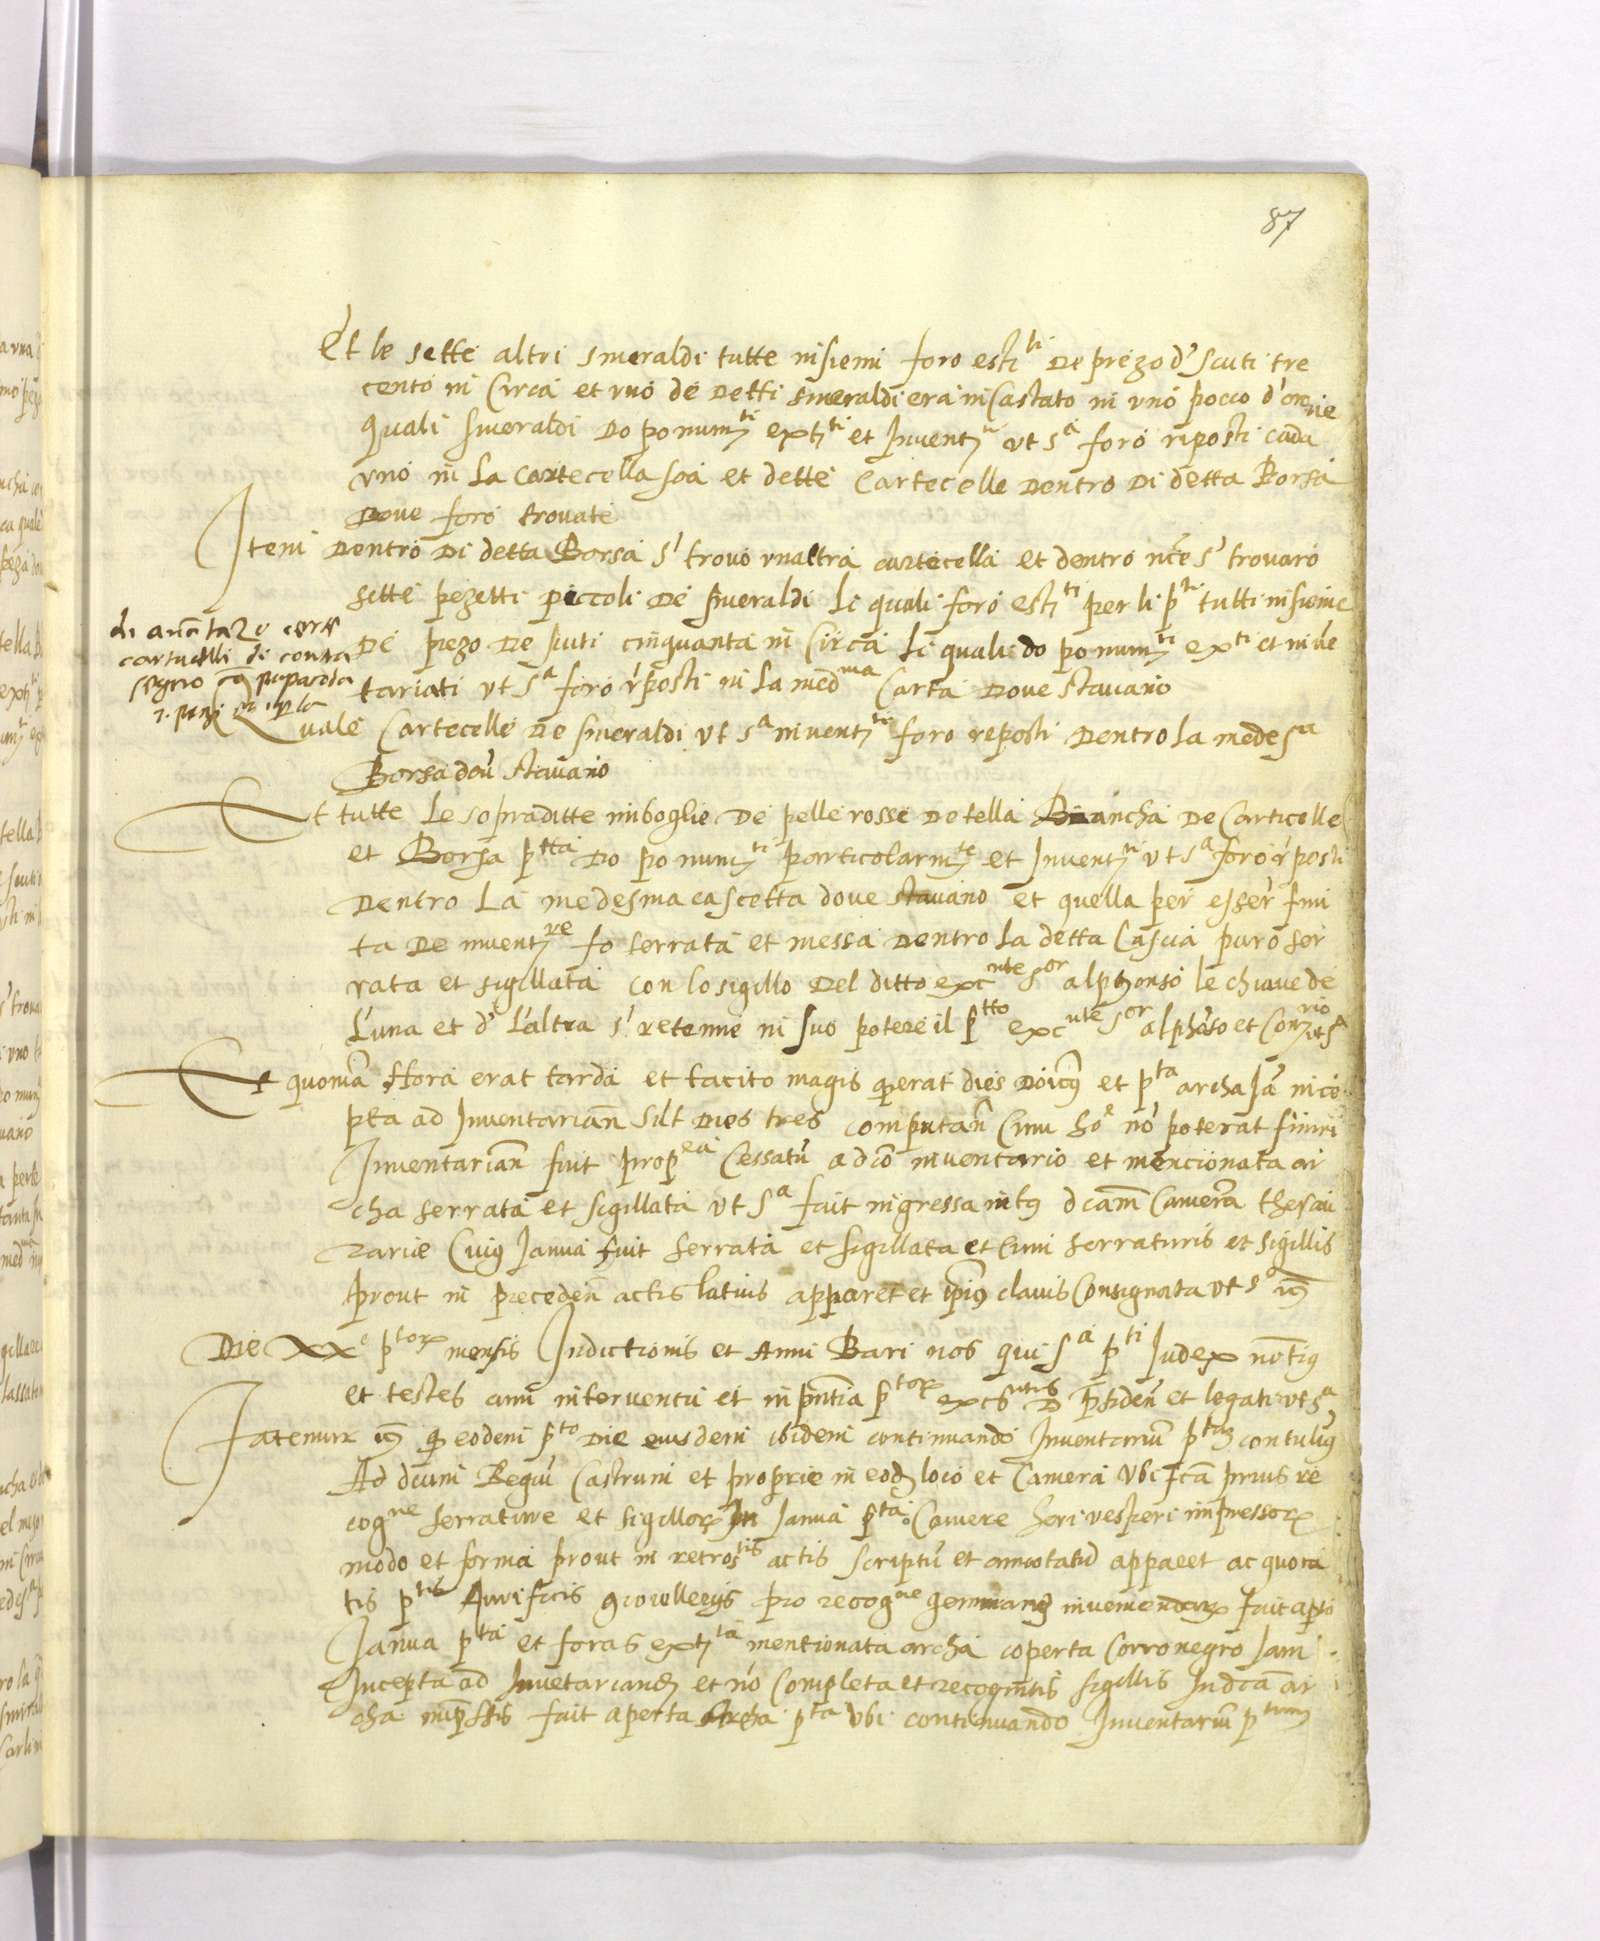 87
Et le sette altri smeraldi tutte insiemi foro esti^ti de prezo d' scuti tre
cento in circa et uno de detti smeraldi era incastato in uno pocco d'oro
quali smeraldi do po num^ti ext^ti et invent^ti ut s^a foro riposti cada
uno in la cartecella soa et dette cartecelle dentro di detta Borsa
Dove foro trovate
Item dentro di detta Borsa s' trovo unaltra cartecella et dentro s' trovaro
sette pezetti piccoli de smeraldi li quali foro est^ti per li p^ti tutti insieme
de prezo de scuti cinquanta in circa li quali do po num^ti ex^ti et inve
tariati ut s^a foro rposti in la med^ma carta dove stavano
di
cartucelli di
segno
Quale cartecelle de smeraldi ut s^a invent^te foro reposti dentro la medes^a
Borsa dov' stavano
Et tutte le sopraditte imboglie de pelle rosse de tella Biancha de carticelle
et Borsa p^tta do po num^ti particolarm^te et invent^ti ut s^a foro rposti
dentro la medesma cascetta dove stavano et quella per esser fini
ta de invent^re fo serrata et messa dentro la detta cascia puro ser
rata et sigillata con lo sigillo del ditto exc^nte s^or alphonso le chiave de
l'una et d' l'altra s' retenne in suo potere il p^tto exc^nte s^or alphoso et Con^rio ut s^a
Et quonia hora erat tarda et tacito magis erat dies et p^ta archa Ia ince
pta ad Inventarian sut dies tres computan cum ho no poterat finiri
Inventarian fuit prop^ea cessatu a dco inventario et mencionata ar
cha serrata et sigillata ut s^a fuit ingressa intus dcam Camera thesau
rarie cuius Ianua fuit serrata et sigillata et cum serraturis et sigillis
prout in preceden actis latius apparet et ipius clavis consignata ut s^a
Die XX^o p^torum mensis Indictionis et Anni Bari nos qui s^a p^ti Iudex notius
et testes cum interventu et in pntia p^torum exc^ntis D presiden et legati ut s^a
Fatemur eodem p^to die eiusdem ibidem continuando Inventarium p^tum contulimus
Ad dcum Regiu Castrum et proprie in eodem loco et Camera ubi fca prius re
cog^ne serrature et sigillorum In Ianua p^ta Camere heri vesperi impressorum
modo et forma prout in retros^tis actis scriptu et annotatu apparet ac quoca
tis p^tis Aurificis gioielleriis pro recog^ne inveniendarum fuit apta
Ianua p^ta et foras ext^ta mentionata archa coperta corro negro Iam
Incepta ad Inventariand et no completa et recognitis sigillis In dca ar
cha impssis fuit aperta Archa p^ta ubi continuando Inventariu p^tum